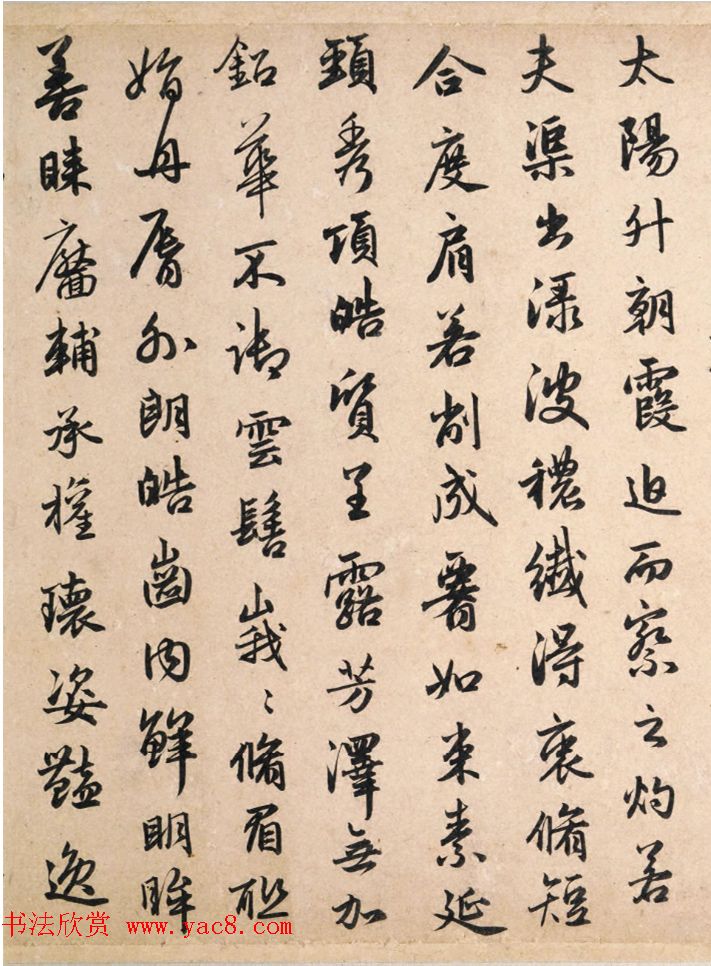 太陽升朝霞迫而察之灼若
夫渠出渌波穠纖得衷脩短
合度肩若削成要如束素延
頸秀項皓質呈露芳澤無加
鉛華不御雲髻峩〻脩眉聯
娟丹脣外朗皓齒内鮮明眸
善睞靨輔承權瓌姿豔逸
书法欣赏 www.yac8.com